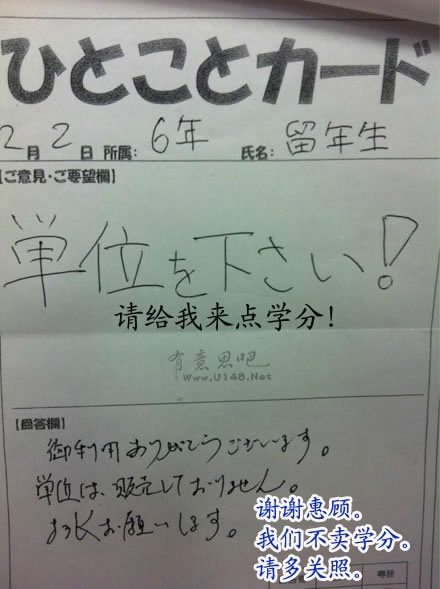 ひとことカード
2月2日 所属: 6年 氏名: 留年生
【ご意見・ご要望欄】
単位を下さい!
请给我来点学分!
有意思吧
www.U148.Net
【回答欄】
御利用ありがとうございます。
単位は、販売しておりません。
よろしくお願いします。
谢谢惠顾。
我们不卖学分。
请多关照。